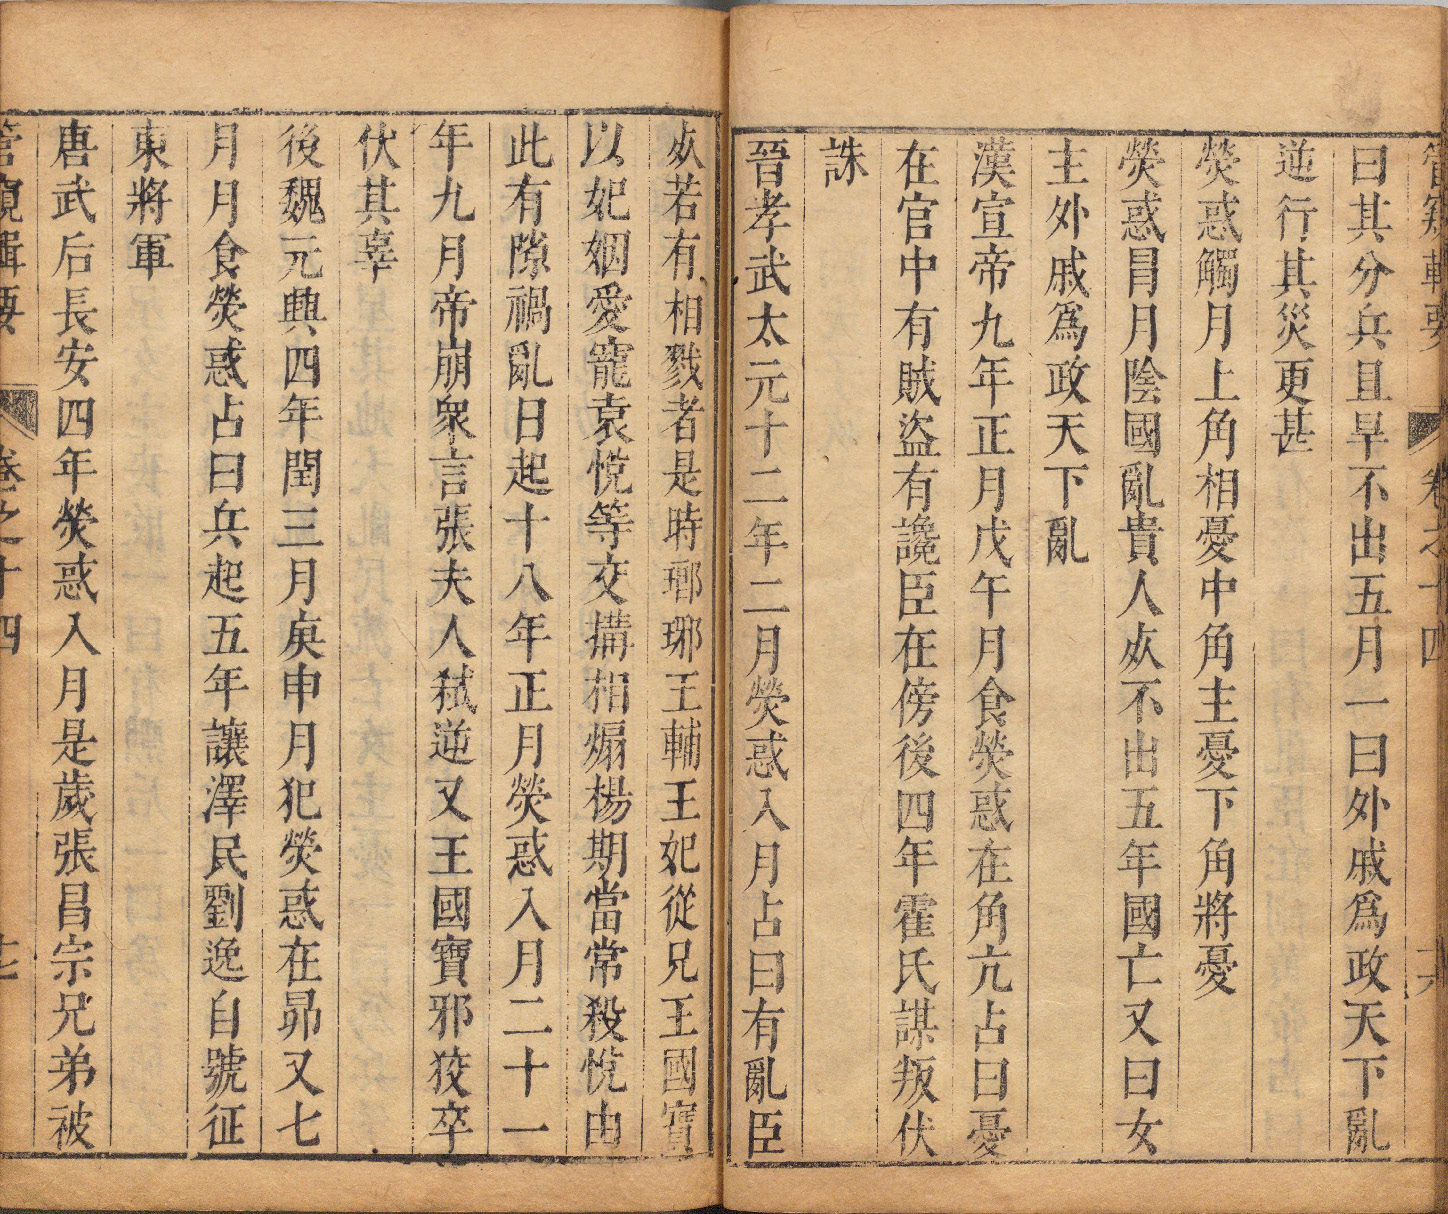 管窺輯要 卷之十四 十六
曰其分兵且旱不出五月一曰外戚爲政天下亂
逆行其災更甚
熒惑觸月上角相憂中角主憂下角將憂
熒惑冒月陰國亂貴人𣦸不出五年國亡又曰女
主外戚爲政天下亂
漢宣帝九年正月戊午月食熒惑在角亢占曰憂
在官中有賊盜有讒臣在傍後四年霍氏謀叛伏
誅
晉孝武太元十二年二月熒惑入月占曰有亂臣
𣦸若有相戮者是時瑯琊王輔王妃從兄王國寶
以妃姻愛寵袁悅等交搆相煽楊期當常殺悅由
此有隙禍亂日起十八年正月熒惑入月二十一
年九月帝崩衆言張夫人弒逆又王國寶邪狡卒
伏其辜
後魏元興四年閏三月庚申月犯熒惑在昴又七
月月食熒惑占曰兵起五年讓澤民劉逸自號征
東將軍
唐武后長安四年熒惑入月是歲張昌宗兄弟被
管窺輯要 卷之十四 十七